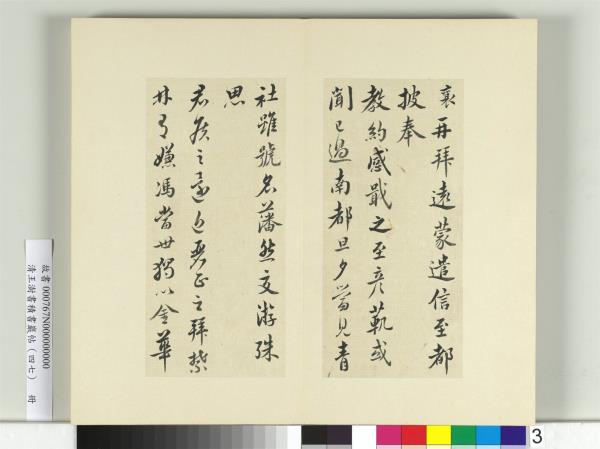 襄再拜遠蒙遣信至都
披奉
教約感戢之至彥猷或
聞已過南都旦夕當見青
社雖號名藩然交游殊
思
君侯之還近麗正之拜禁
林有嫌馮當世獨以金華
故書000767N000000000
清王澍書積書巖帖(四七) 冊
3